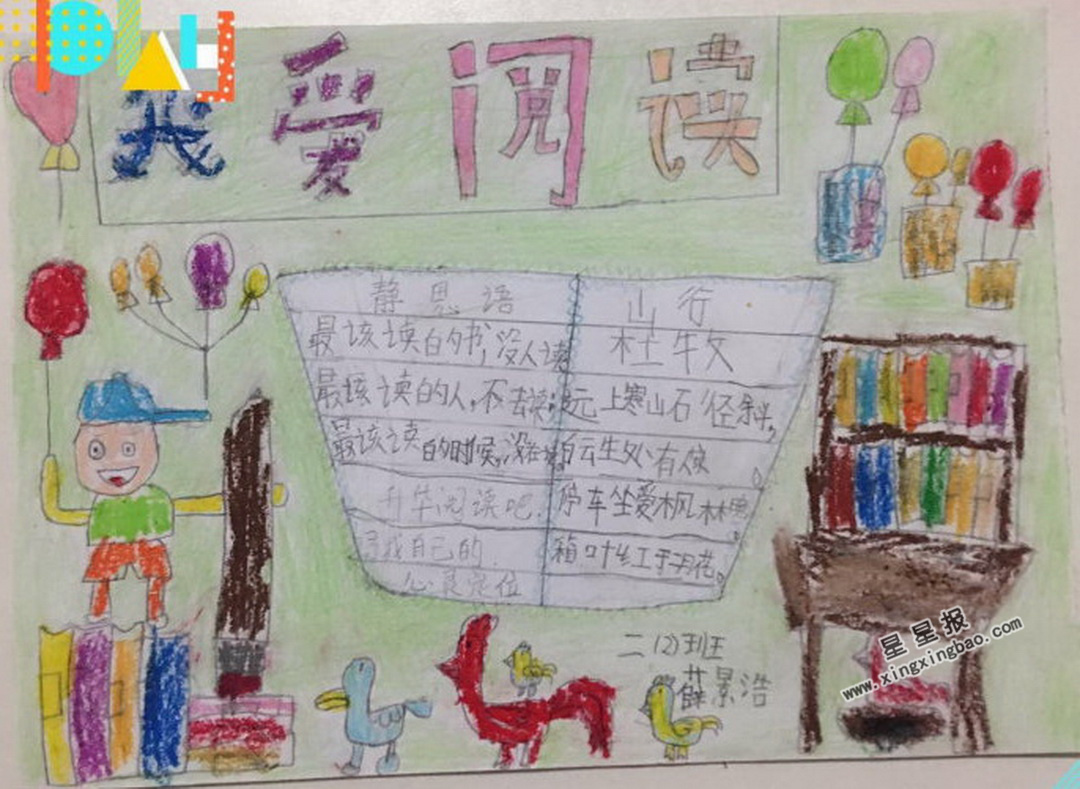 play
我爱阅读
静思语
最该读的书,没人读
最该读的人,不去读
最该读的时候,没
升华阅读吧.
寻找自己的.
心灵定位
山行
杜牧
远上寒山石径斜,
白云生处有人家
停车坐爱枫林晚
箱叶红于二月花。
二(2)班
薛景浩
星星报
www.xingxingbao.com